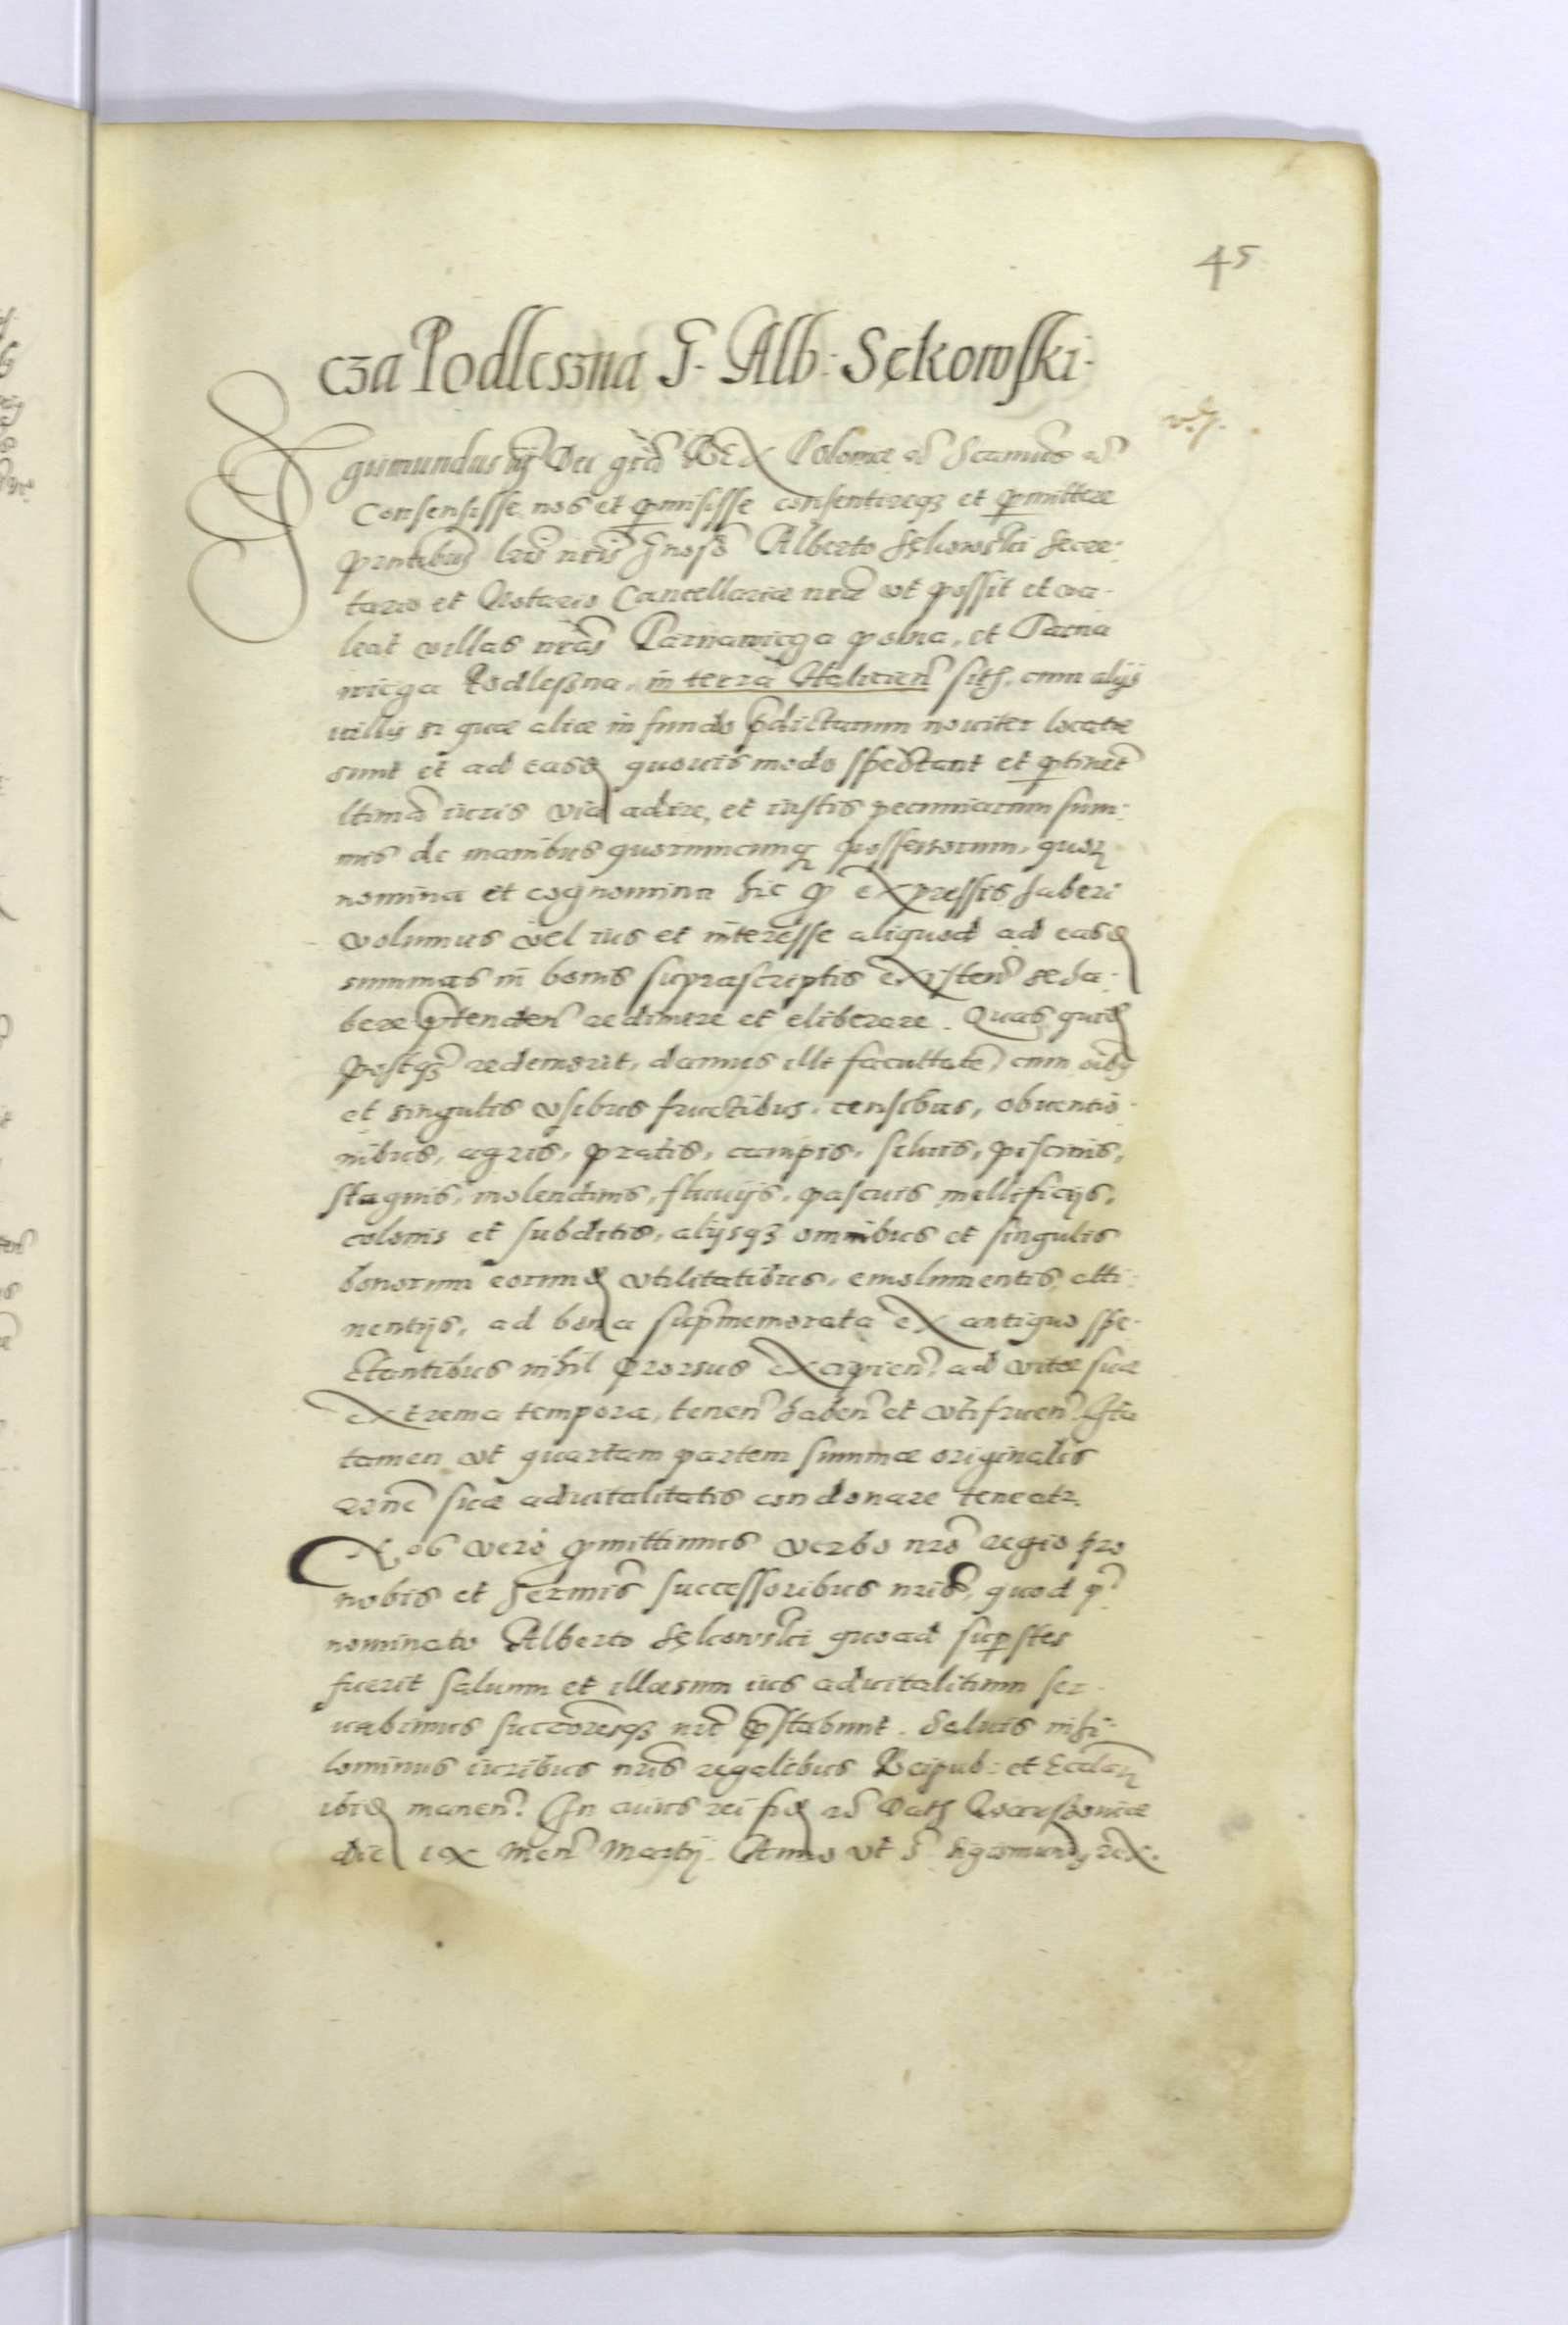 45
cza Podleszna G. Alb: Sękowski.
Sigismundus iij Dei grã REX Poloniæ etc̃ Scamus etc̃
Consensisse nos et pmisisse consentireqз et pmittere
pntibus lris nris Gnoso Alberto Sękowski Secre-
tario et Notario Cancellariæ nræ vt possit et va-
leat villas nras Parnawicga polna, et Parna
wicga Podleszna, in terra Haliciẽn sitɜ, cum alijs
villis si quæ aliæ in fundo pdictarum nouiter locatæ
sunt et ad easd quouis modo spectant et ptinẽt
ltima iuris via adire, et iustis pecuniarum sum-
mis de manibus quorumcunqз possessorum, quorɜ
nomina et cognomina hic p expressis haberi
volumus vel ius et interesse aliquod ad easd
summas in bonis suprascriptis existen̄ se ha-
bere ptenden̄ redimere et eliberare. Quas quid
postqɜ redemerit, damus illi facultatẽ cum oibɜ
et singulis vsibus fructibus, censibus, obuentio-
nibus, agris, pratis, campis, siluis, piscinis,
stagnis, molendinis, fluuijs, pascuis mellificijs,
colonis et subditis, alijsqз omnibus et singulis
bonorum eorund vtilitatibus, emolumentis, atti-
nentijs, ad bona supmemorata ex antiquo spe-
ctantibus nihil prorsus excipien̄, ad vitæ suæ
extrema tempora, tenen̄ haben̄ et vtifruen̄. Ita
tamen vt quartam partem summæ originalis
rõne suæ aduitalitatis condonare teneatr.
Nos vero pmittimus verbo nrõ regio pro
nobis et Sermis successoribus nris, quod p-
nominato Alberto Sękowski quoad supstes
fuerit saluum et illæsum ius aduitalitium ser-
uabimus succoresqз nri pstabunt. Saluis nihi-
lominus iuribus nris regalibus Reipub: et Ecclarɜ
ibid manen̄. In cuius rei fid etc̃ Datɜ Warszouiæ
die ix Men̄ Martij Anno vt sᵃ Sigismundɜ rex.